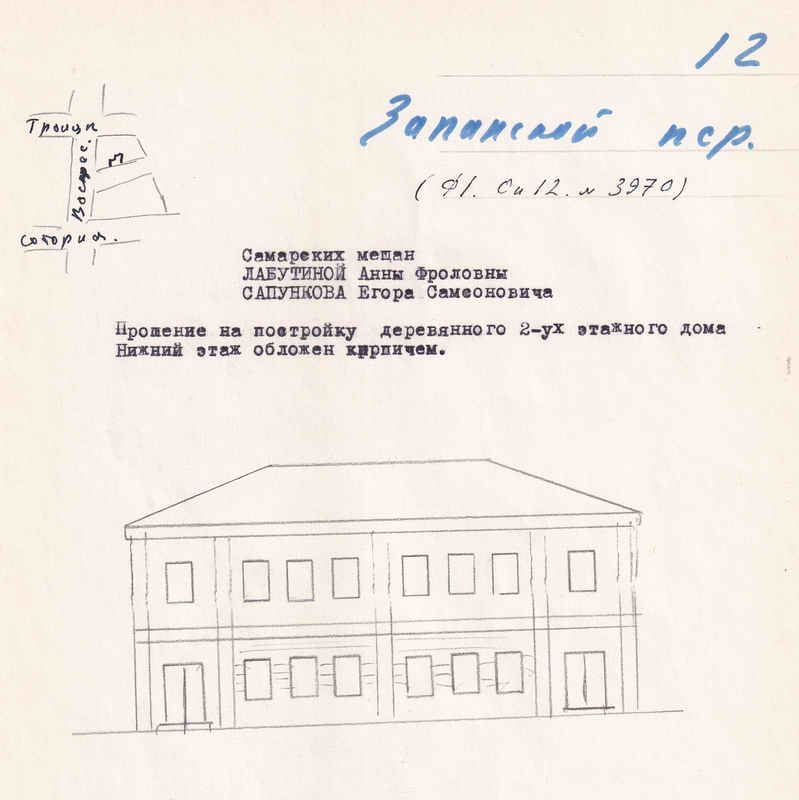 12
Запанской пер.
(Ф1. Оп 12. № 3970)
Троицк
Воскрес.
3
Соборная.
Самарских мещан
ЛАБУТИНОЙ Анны Фроловны
САПУНКОВА Егора Самсоновича
Прошение на постройку деревянного 2-ух этажного дома
Нижний этаж обложен кирпичем.